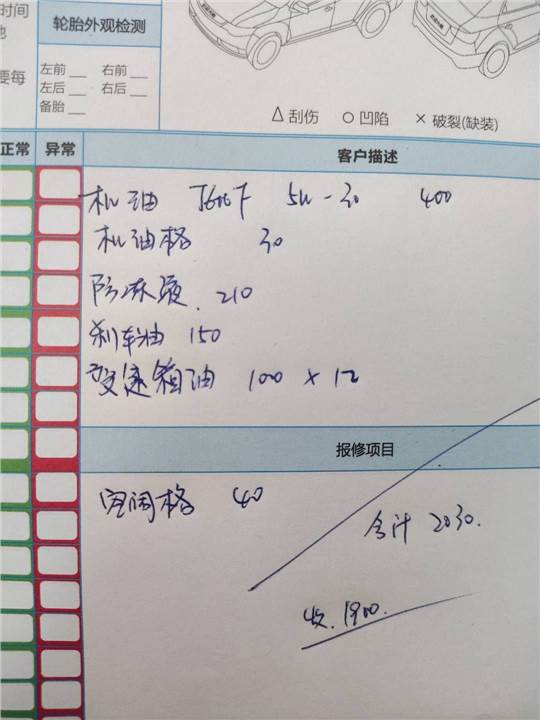 时间
轮胎外观检测
左前 右前
要每
左后 右后
备胎
△ 刮伤 ○ 凹陷 × 破裂(缺装)
正常 异常 客户描述
机油 5W-30 400
机油格 30
防冻液. 210
刹车油 150
变速箱油 100 × 12
报修项目
空调格 40
合计 2030.
收. 1900.